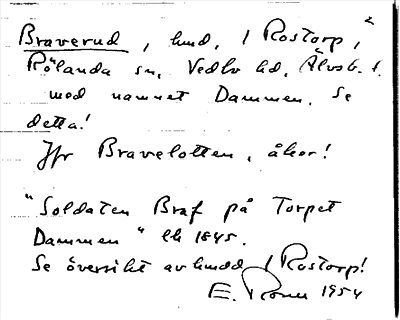 Braverud, hmd, 1 Rostorp, 2
Rölanda sn, Vedbo hd, Älvsb. l.
med namnet Dammen. Se
detta!
Jfr Bravelotten, åker!
"Soldaten Braf på Torpet
Dammen" lk 1845.
Se översikt av hmdd 1 Rostorp!
E. 1954